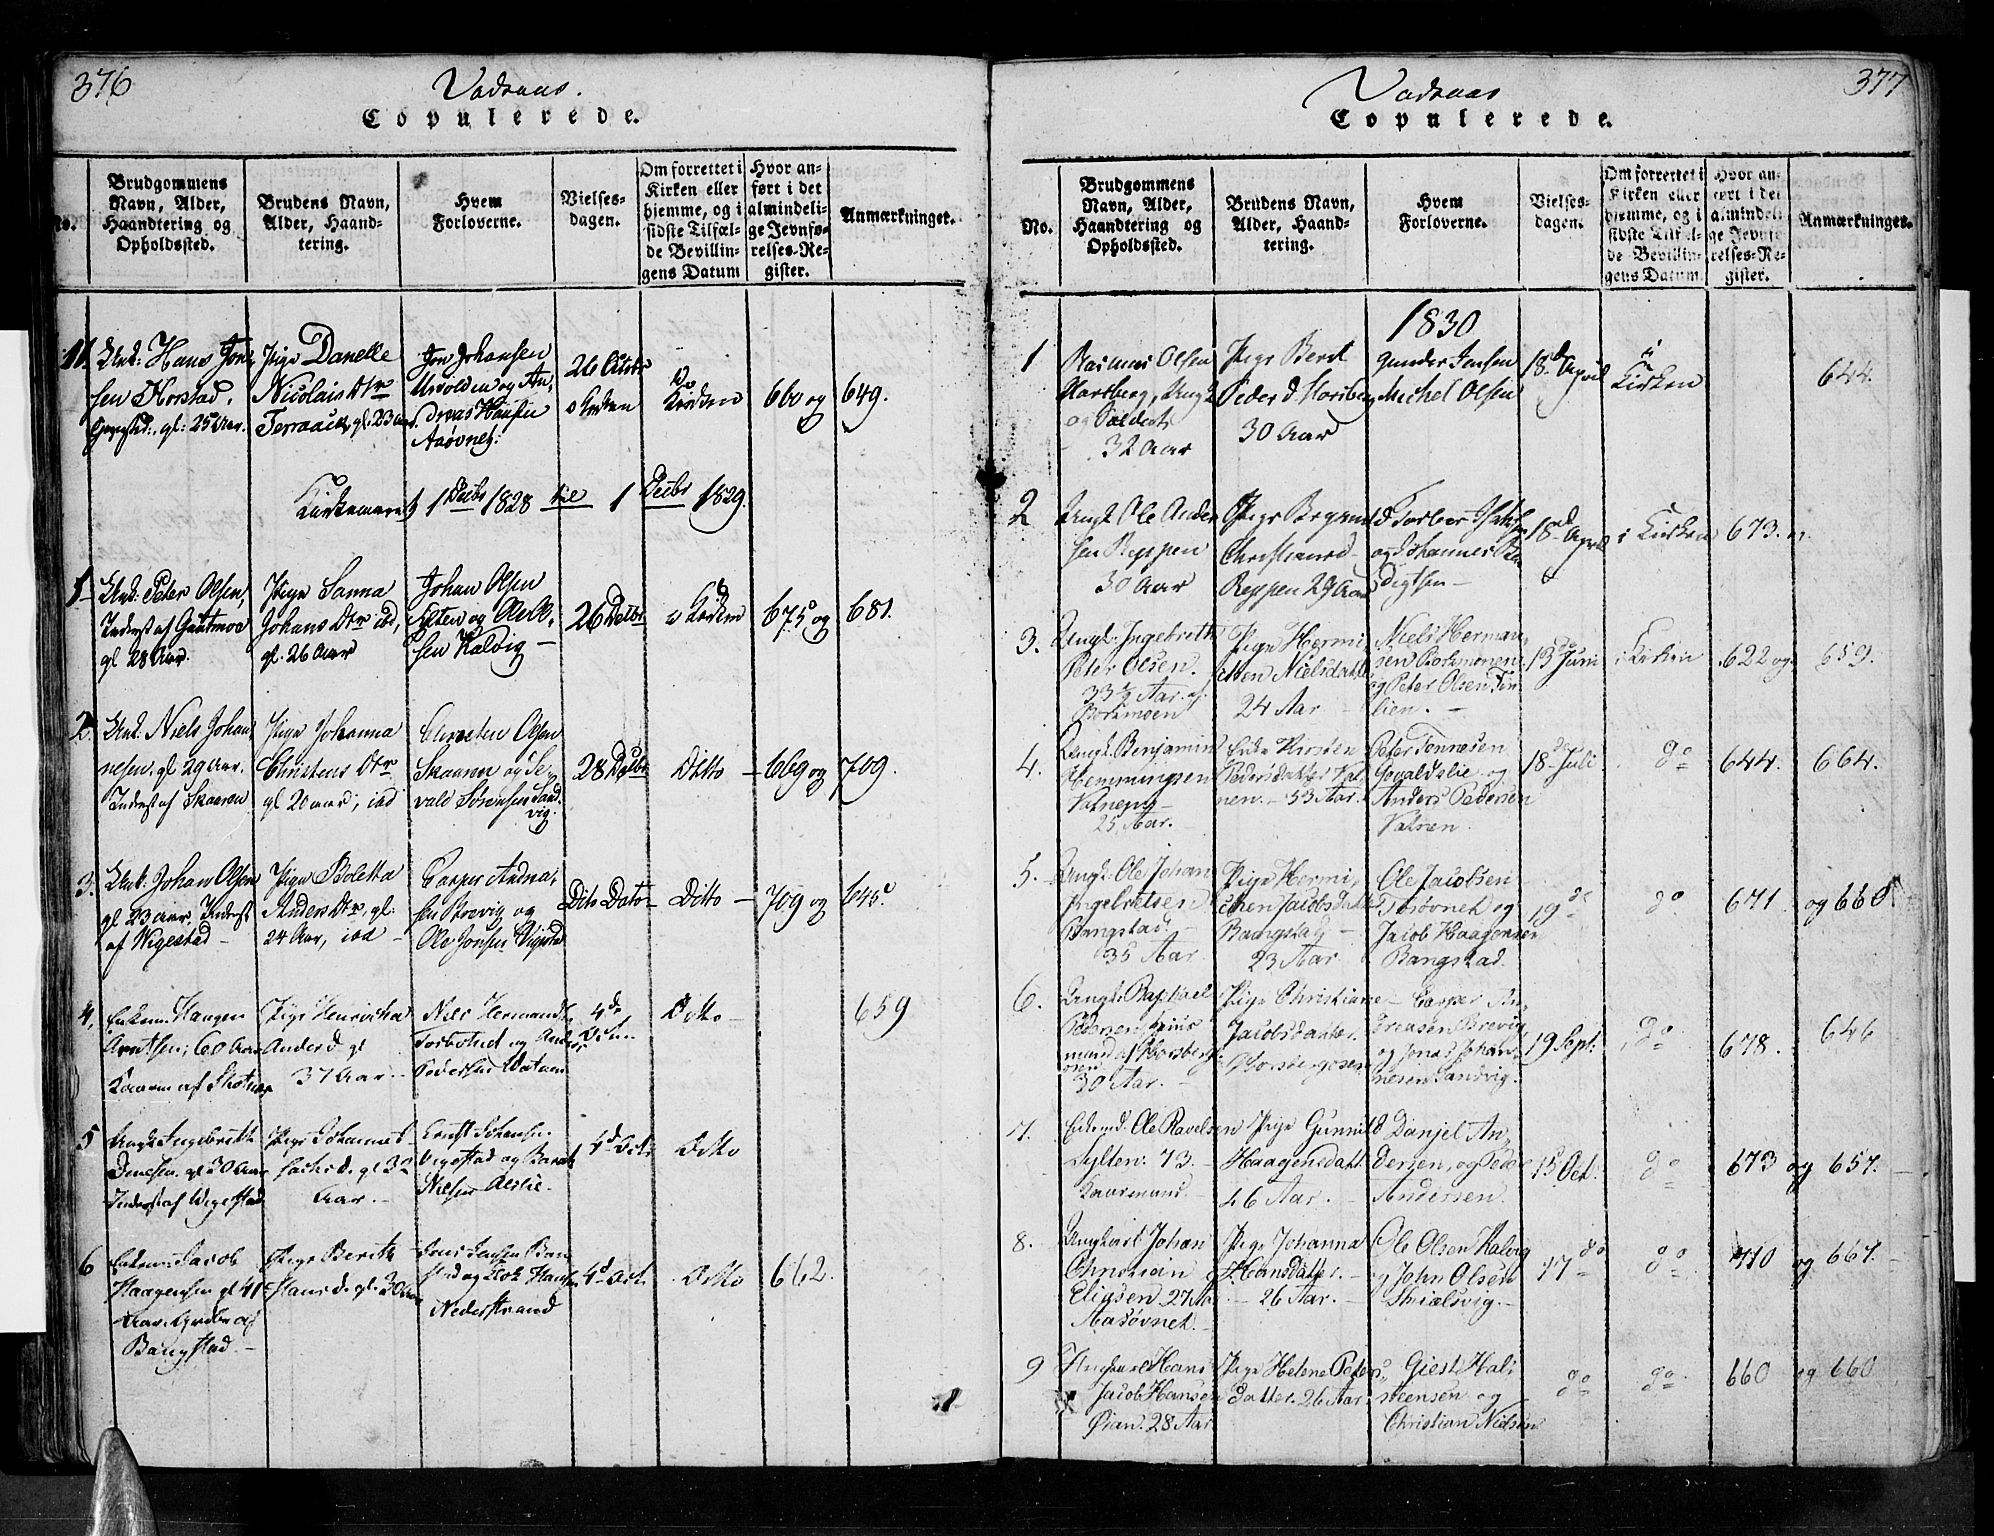 376
Vadsaas.
Copulerede.
No.
Brudgommens Navn, Alder, Haandtering og Opholdssted.
Brudens Navn, Alder, Haandtering.
Hvem Forloverne.
Vielsesdagen.
Om forrettet i Kirken eller hjemme, og i sidste Tilfælde Bevillingens Datum
Hvor anført i det almindelige Jevnførelses-Register.
Anmærkninger.
11. Unk: Hans Jon-
sen Horstad,
gl: 25 Aar.
Pige Danelle
Nicolais Dtr
gl. 23 aar
Jon Johansen
og An-
dreas Hansen
Aasøvnet:
26 Octbr
Kirken
660 og
649.
1 Decbr 1828 til 1 Decbr 1829.
1 Unk: Peter Olsen,
Inderst af
gl 28 Aar.
Pige Sanna
Johans Dtr ibd,
gl. 26 Aar
Johan Olsen
og Ole Ol-
sen Kalvig
26 Decbr
i Kirken
675 og
681.
2. Unk: Niels Johan-
nesen, gl 29 Aar.
Inderst af Skaaren
Pige Johanna
Christens Dtr
gl 20 aar, ibd
Christen Olsen
Skaaren og Se-
vald Sørensen Sand-
vig.
28 Decbr
Ditto
669 og
709.
3. Unk: Johan Olsen
gl 23 aar, Inderst
af Wigestad
Pige Boletta
Anders Dtr, gl:
24 Aar, ibd
Casper Andrea-
sen Brevig og
Ole Jonsen Vigestad
Dito Dato
Ditto
709 og
645
4, Enkem: Haagen
Arntsen, 60 Aar
Pige Henricha
Anders d. gl
37 Aar.
Niels Hermands.
og Anders
Pedersen
4de
Ditto
659
5 Ungk: Ingebrigth
gl. 30 Aar
Inderst af Wigestad
Pige Johanna
gl 32
Aar.
Ernst Johansen
Vigestad og
Nielsen
4de Oct:
Ditto
6 Enkem: Jacob
Haagensen gl 41
Aar. af
Bangstad.
Pige Berith
Hans d. gl. 30 aar
Jens Jensen Ban-
stad og Hansen
Nederstrand
4de Oct.
Ditto
662.
377
Vadsaas
Copulerede.
No.
Brudgommens Navn, Alder, Haandtering og Opholdssted.
Brudens Navn, Alder, Haandtering.
Hvem Forloverne.
Vielsesdagen.
Om forrettet i Kirken eller hjemme, og i sidste Tilfælde Bevillingens Datum
Hvor anført i det almindelige Jevnførelses-Register.
Anmærkninger.
1830
1 Rasmus Olsen
Horsberg, Ungk.
og Soldat,
32 Aar
Pige Berit
Peders d. Horsberg
30 Aar
Gunder Jensen
Michel Olsen
18de April
i
Kirken
644.
2 Ungk. Ole Ander-
sen Reppen
30 Aar
Pige
Christians d.
Reppen 29 Aar
og Johannes Ben-
digtsen
18de April
i Kirken
673.
3. Ungk: Ingebreth
Peter Olsen.
33½ Aar. af
Borkmoen
Pige Hermi-
chen Nielsdatter
24 Aar
Niels Herman-
sen Borkmoen
og Peter Olsen Fin-
lien.
13de Juni
i Kirken
622 og
659.
4. Ungk: Benjamin
Hemmingsen
25 Aar.
Enke Kirsten
Pedersdatter Val-
nen. 53 Aar.
Peter Tonnesen
og
Anders Pedersen
Valnen.
18de Juli
do
644.
664.
5. Ungk: Ole Johan
Ingebretsen
Bangstad.
35 Aar
Pige Hermi-
chen Jacobsdatter
Bangstad
23 Aar
Ole Jacobsen
Aasøvnet og
Jacob Haagensen
Bangstad.
19de
do
671
og 660
6. Ungk: Raphael
Pedersen
mand af Horsberg-
osen
30 Aar.
Pige Christiane
Jacobsdatter.
Horsbergosen
Casper An-
dreasen Brevig
og Jonas Johan-
nesen Sandvig.
19 Sept:
do
678.
646
7. Enkemd. Ole Ravelsen
Sylten. 73.
Kaarmand.
Pige Gunnild
Haagensdatt.
46 Aar.
Danjel An-
dersen, og Peder
Andersen
15 Oct:
do
673
og 657.
8. Ungkarl Johan
Christian
Eliasen 27 Aar
Aasøvnet.
Pige Johanna
Hansdatter.
26 Aar.
Ole Olsen Kalvig
og John Olsen
Skielsvig.
17de
do
710
og 667.
9 Ungkarl Hans
Jacob Hansen
Øian. 28 Aar
Pige Helene Peters-
datter. 26 Aar
Giest Hal-
steensen og
Christian Nielsen
do
do
660
og 660